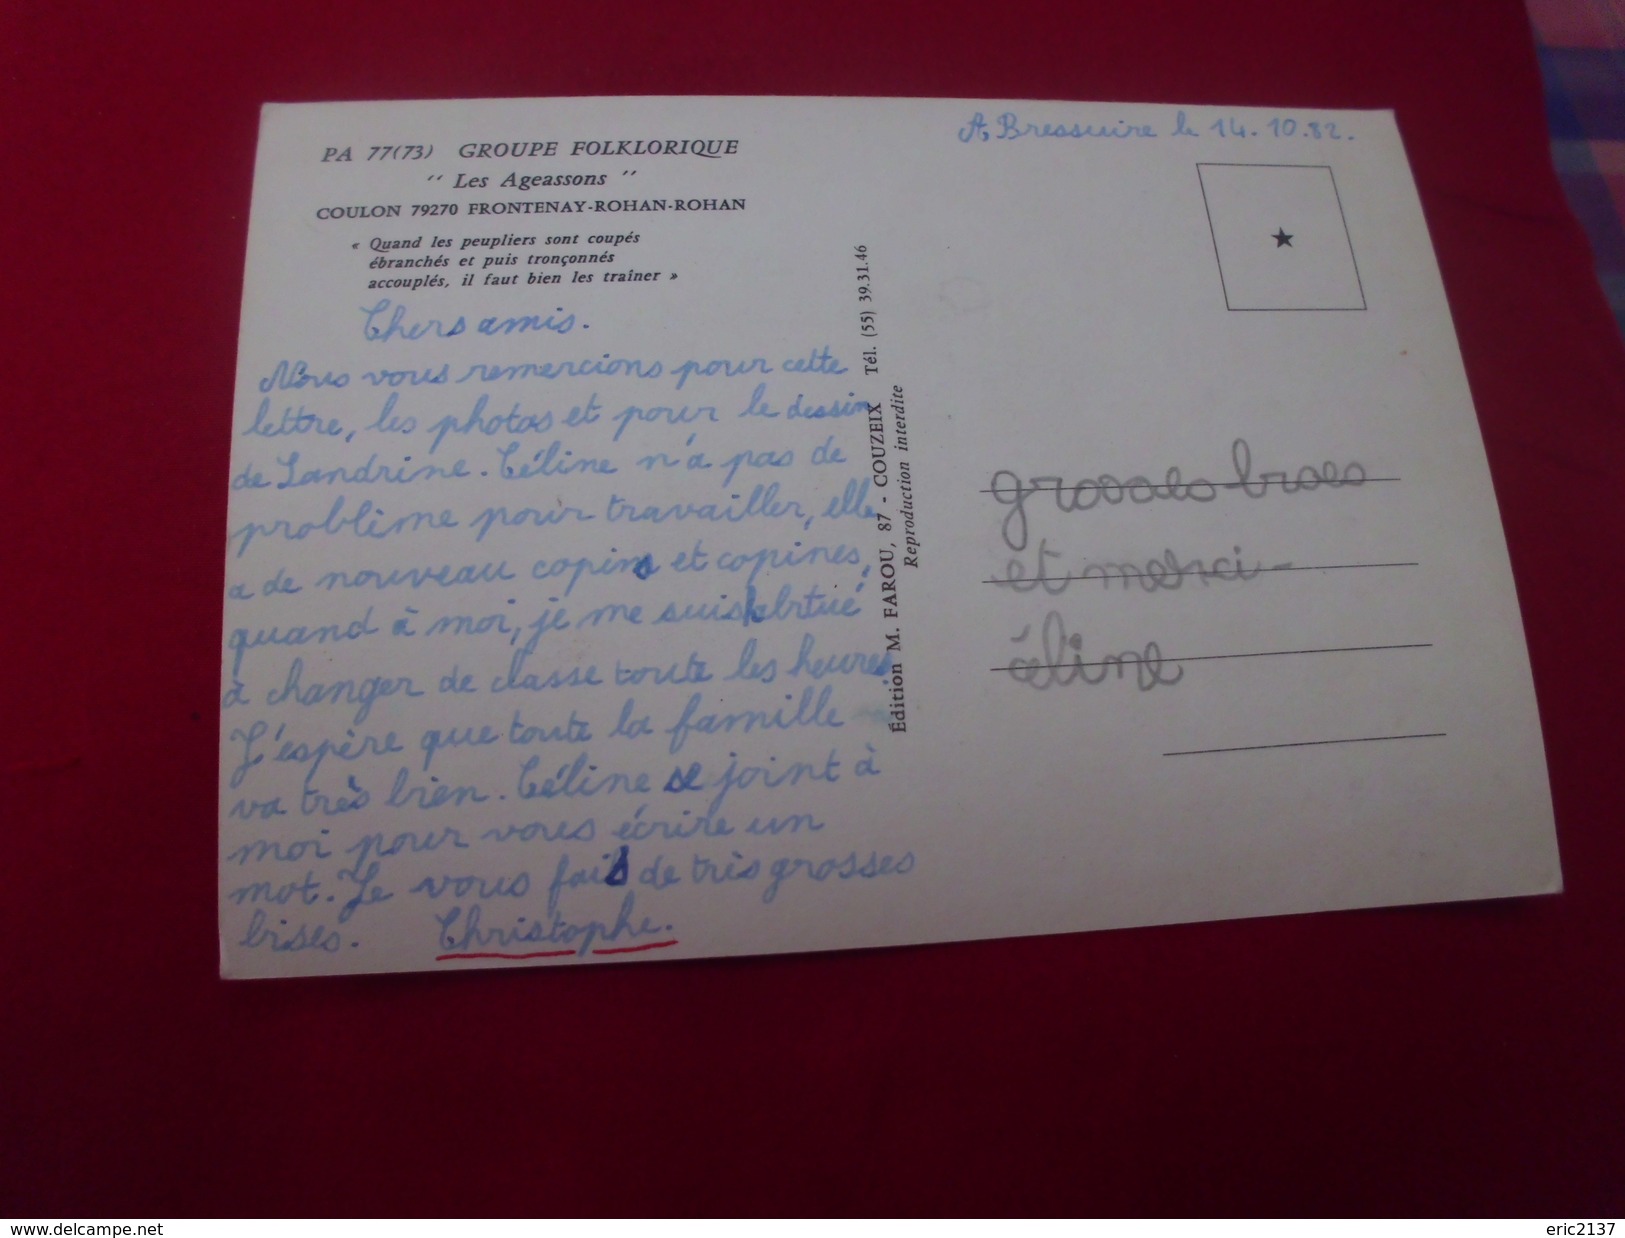 PA 77(73) GROUPE FOLKLORIQUE
" Les Ageassons "
COULON 79270 FRONTENAY-ROHAN-ROHAN
« Quand les peupliers sont coupés
ébranchés et puis tronçonnés
accouplés, il faut bien les traîner »
Chers amis.
Nous vous remercions pour cette
lettre, les photos et pour le dessin
de Sandrine. Céline n'a pas de
problème pour travailler, elle
a de nouveau copins et copines,
quand à moi, je me suis
à changer de classe toute les heures.
J'espère que toute la famille
va très bien. Céline se joint à
moi pour vous écrire un
mot. Je vous fais de très grosses
bises. Christophe.
Édition M. FAROU, 87 - COUZEIX Tél. (55) 39.31.46
Reproduction interdite
A, Bressuire le 14.10.82.
★
grosses
et merci
céline
www.delcampe.net
eric2137